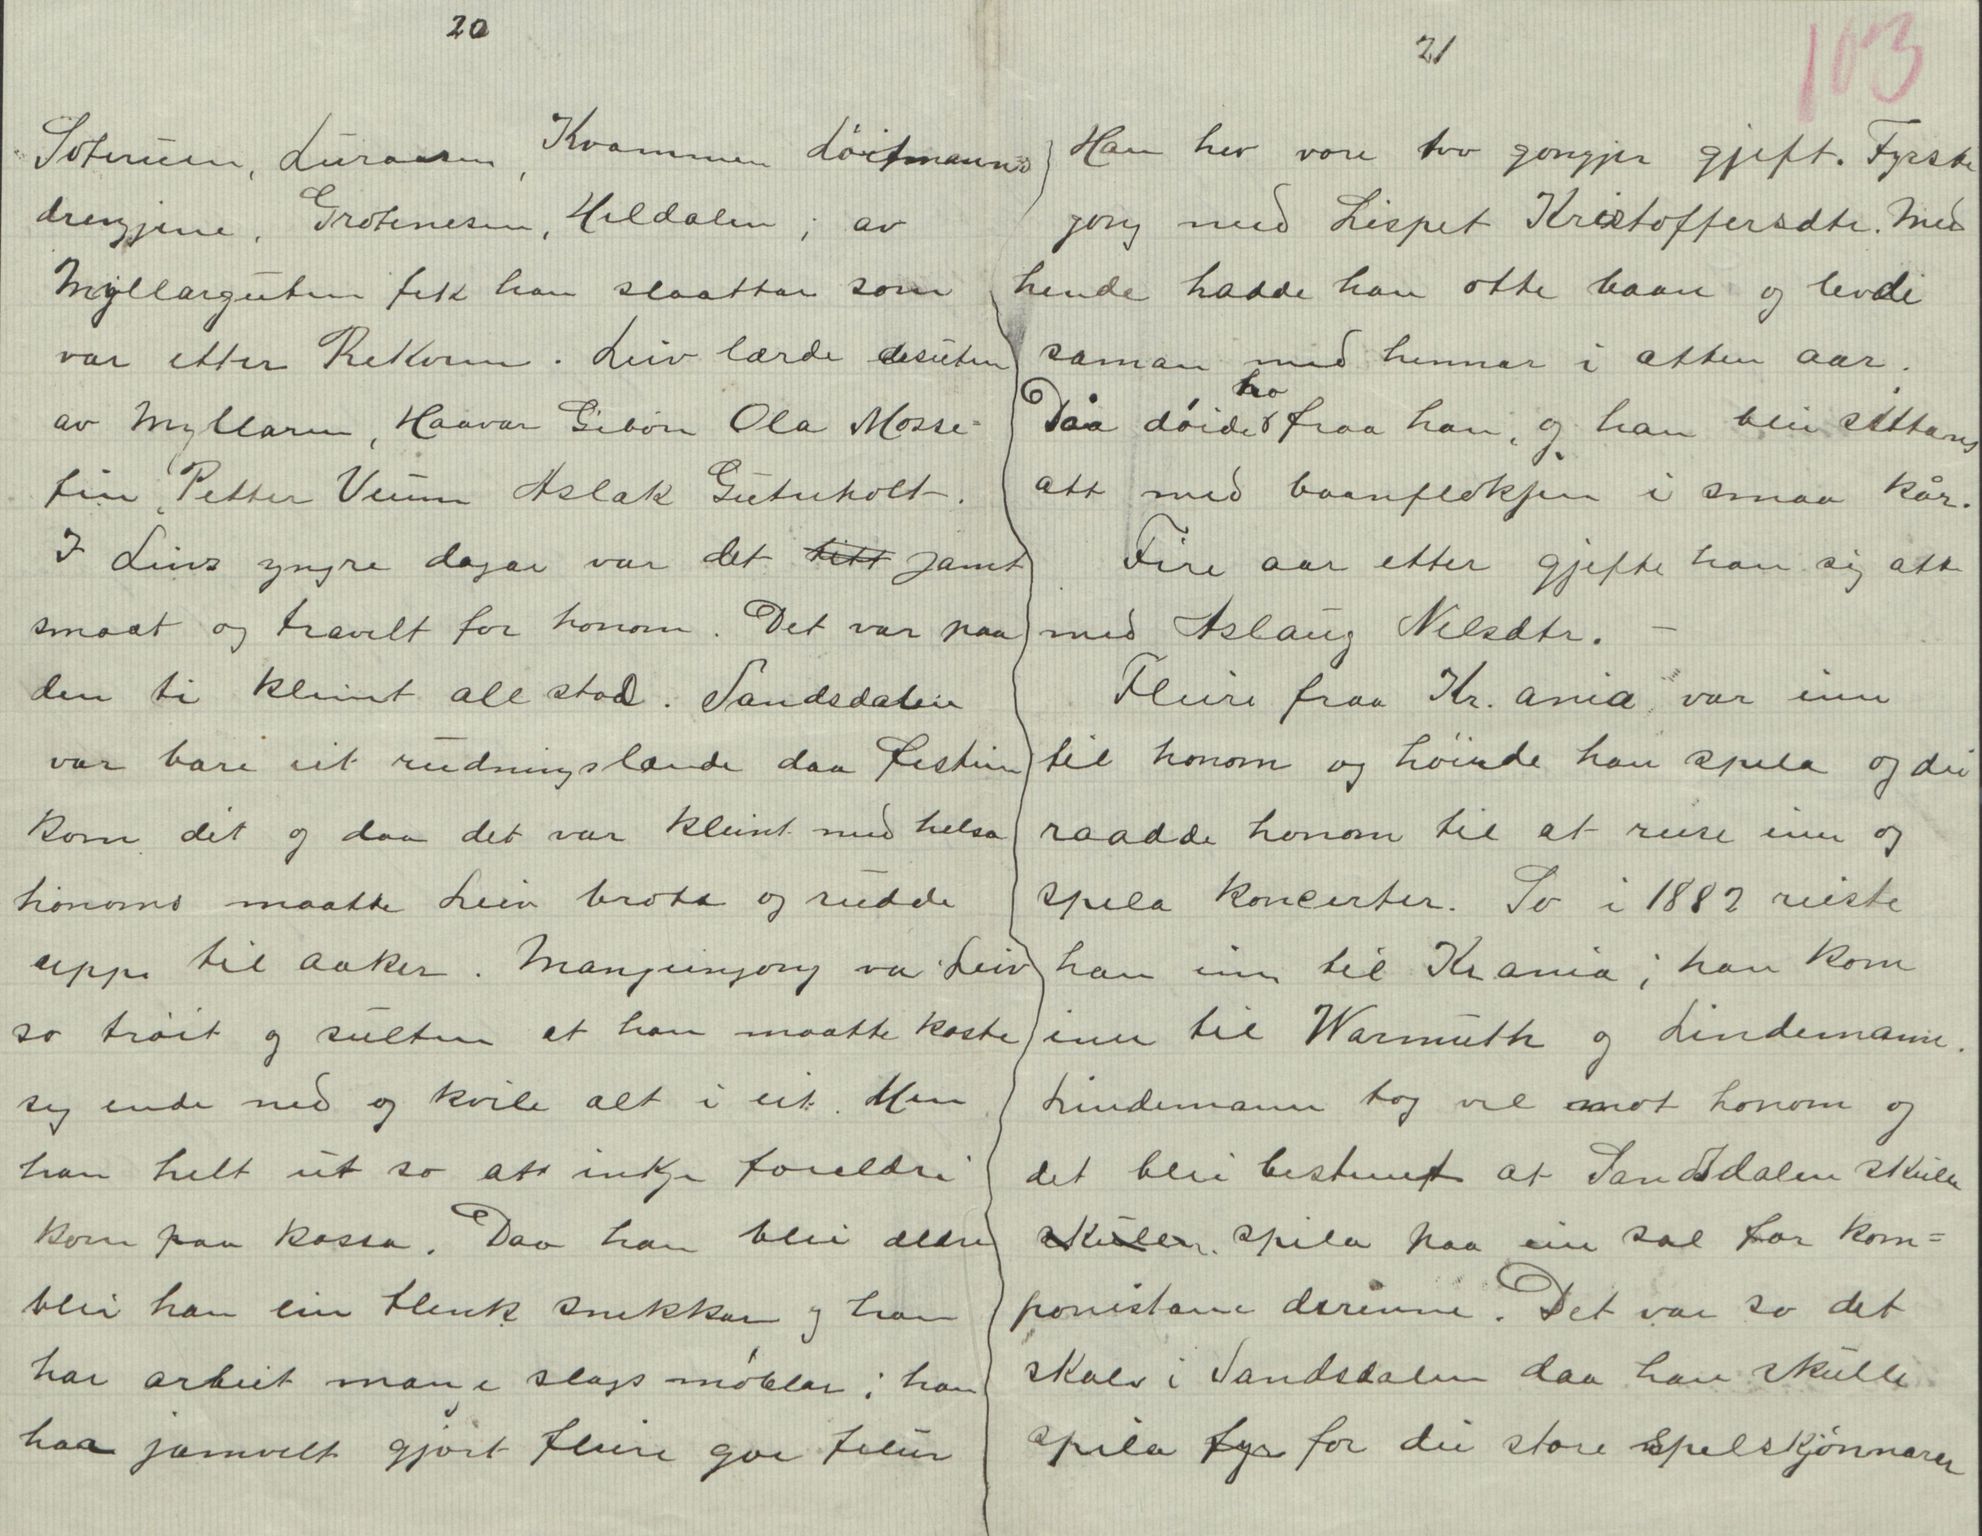 20
Soteruen, Luraasen, Kvammen Løitmanns
drengjene, Grotenesen, Hildalen; av
Myllarguten fek han slaattar som
var etter Rekven. Leiv lærde desuten
av Myllaren, Haavar Gibøn Ola Mosse-
fin, Petter Veum Aslak Gutuholt.
I Leivs yngre dagar var det titt jamt
smaat og travelt for honom. Det var paa
den ti kleint all stad. Sandsdalen
var bare eit rudningslænde daa Østein
kom dit og daa det var kleint med helsa
honoms maatte Leiv brota og rudde
uppe til aaker. Mangeingong va Leiv
so trøit og sulten at han maatte kaste
seg ende ned og kvile alt i eit. Men
han helt ut so att inkje foreldri
kom paa kassa. Daa han blei eldre
blei han ein flink snikkar og han
har arbeit mange slags møblar; han
haa jamvelt gjort fleire goe felur
21
103
Han hev vore tvo gongjer gjeft. Fyrste
gong med Lispet Kristoffersdtr. Med
hende hadde han otte baan og levde
saman med hennar i atten aar.
Daa døide ho fraa han, og han blei sittans
att med baanflokkjen i smaa kår.
Fire aar etter gjefte han sig att
med Aslaug Nilsdtr. –
Fleire fraa Kr. ania var inn
til honom og høirde han spela og dei
raadde honom til at reise inn og
spela koncerter. So i 1882 reiste
han inn til Kr ania; han kom
inn til Warmuth og Lindemann.
Lindemann tog vel imot honom og
det blei bestemt at Sandsdalen skulle
skulle spila paa ein sal for kom=
ponistane derinne. Det var so det
skalv i Sandsdalen daa han skulle
spila fyr for dei store spelskjønnarer